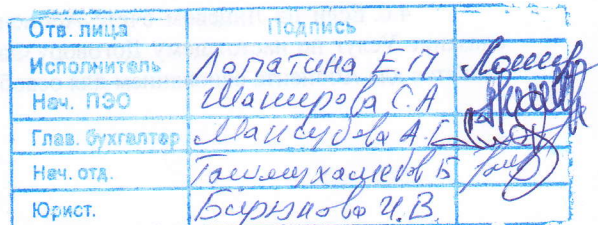 Отв. лица Подпись
Исполнитель Лопатина Е.П.
Нач. ПЭО Шакирова С.А
Глав. бухгалтер Мансурова А.Г
Нач. отд. Ташмухамедов Б
Юрист. Бирюкова И.В.